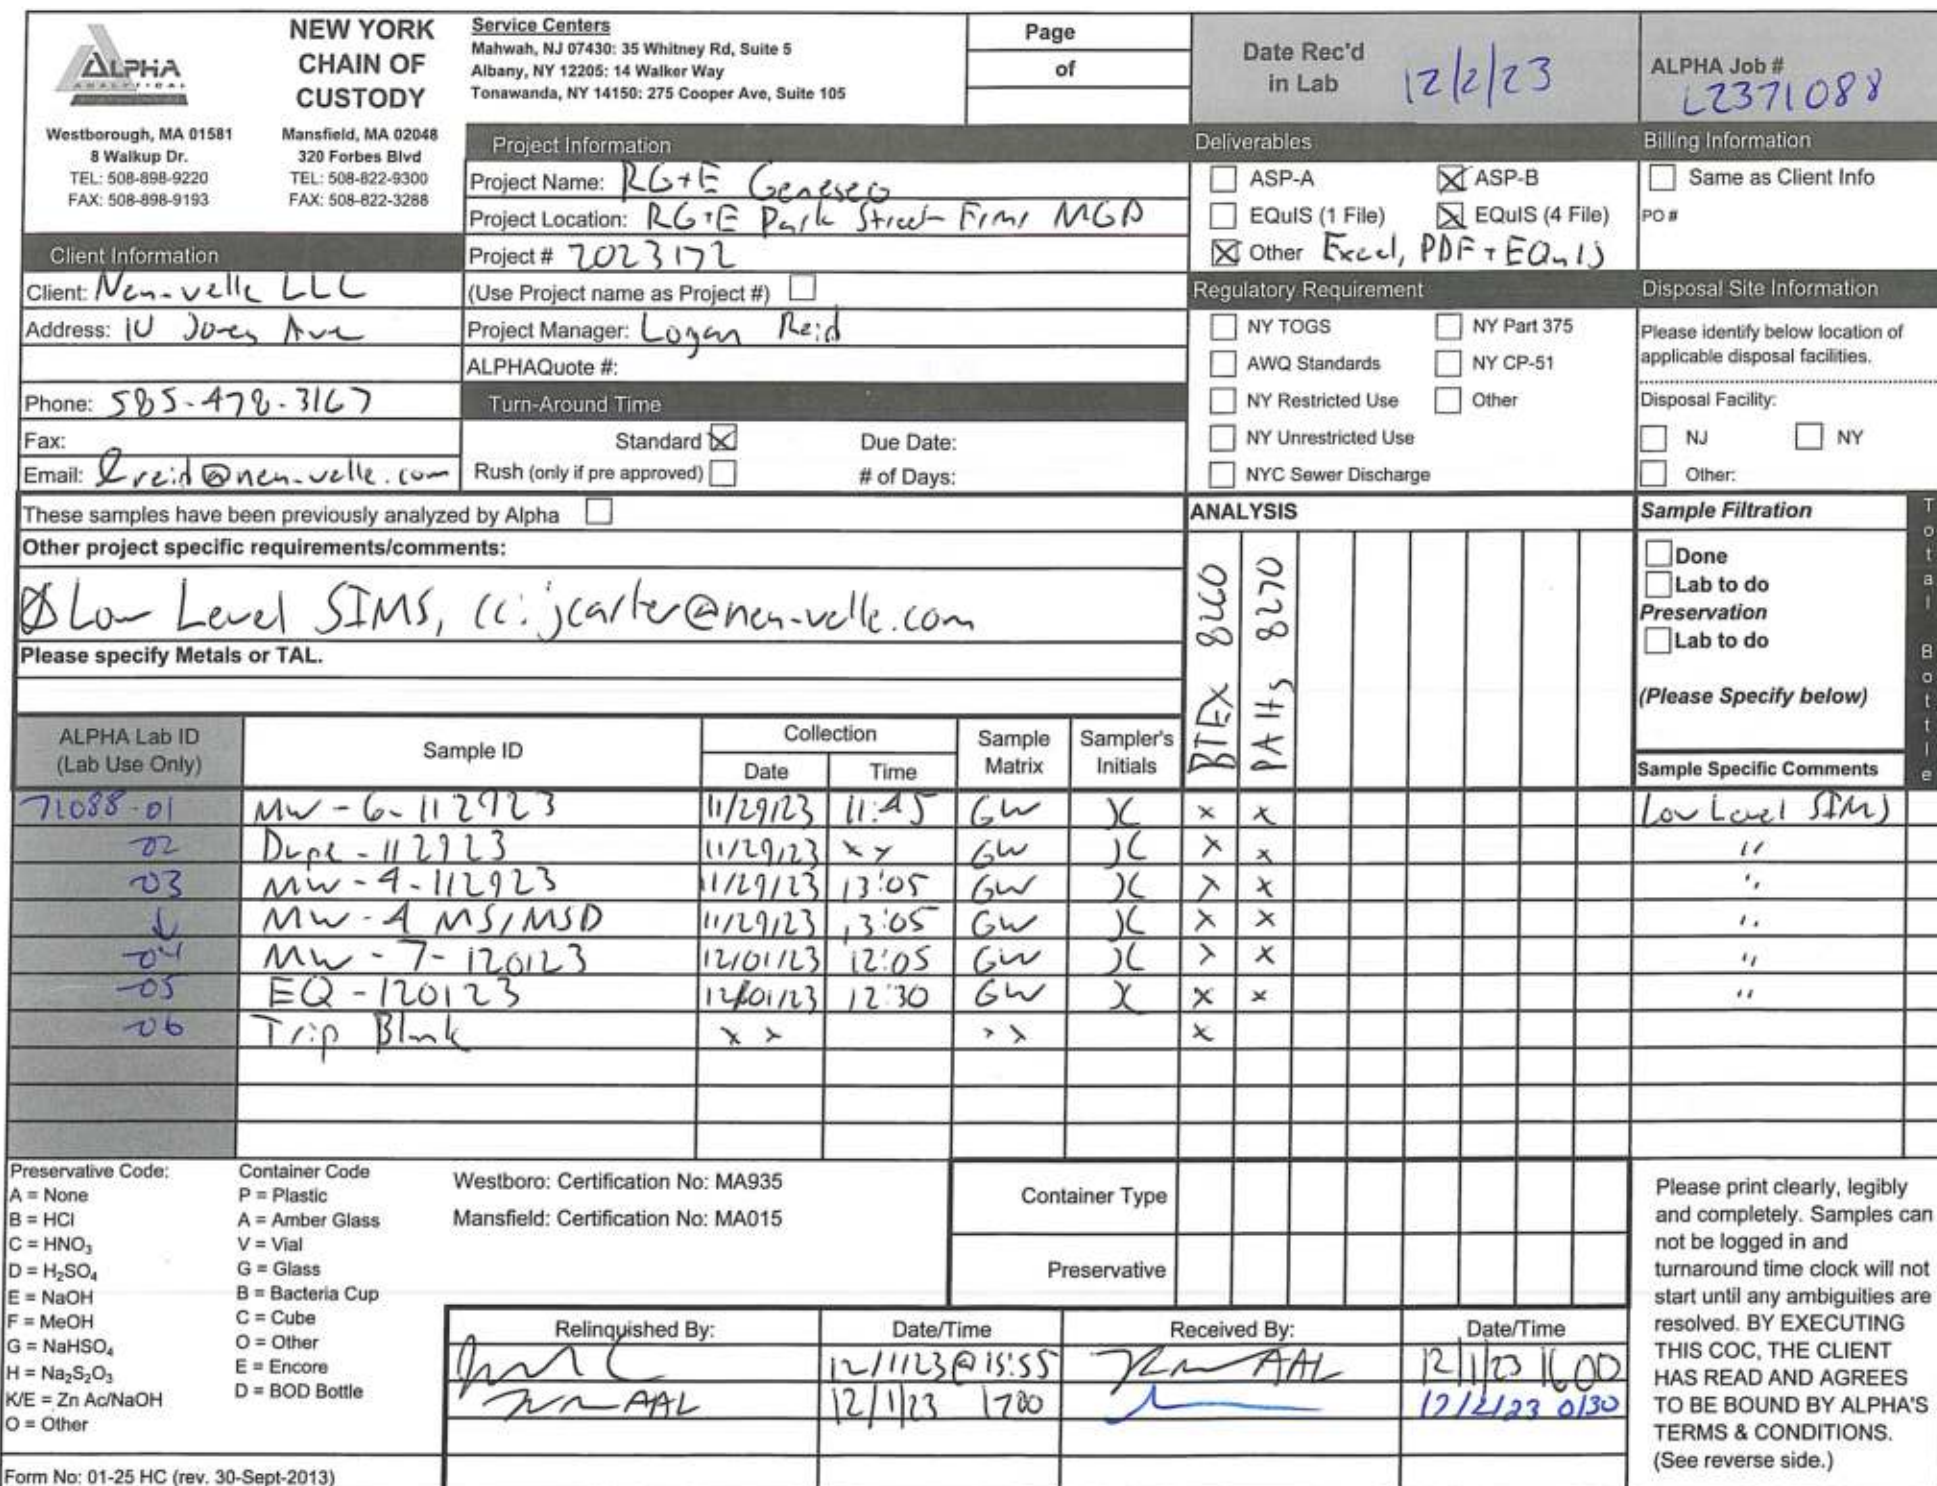 ALPHA
ANALYTICAL
NEW YORK
CHAIN OF
CUSTODY
Westborough, MA 01581
8 Walkup Dr.
TEL: 508-898-9220
FAX: 508-898-9193
Mansfield, MA 02048
320 Forbes Blvd
TEL: 508-822-9300
FAX: 508-822-3288
Service Centers
Mahwah, NJ 07430: 35 Whitney Rd, Suite 5
Albany, NY 12205: 14 Walker Way
Tonawanda, NY 14150: 275 Cooper Ave, Suite 105
Page
of
Date Rec'd
in Lab 12/2/23
ALPHA Job #
L2371088
Client Information
Client: Neu-velle LLC
Address: 10 Jones Ave
Phone: 585-478-3167
Fax:
Email: lreid@neu-velle.com
Project Information
Project Name: RG+E Geneseo
Project Location: RG+E Park Street Frmr MGP
Project # 2023172
(Use Project name as Project #)
Project Manager: Logan Reid
ALPHAQuote #:
Turn-Around Time
Standard Due Date:
Rush (only if pre approved) # of Days:
Deliverables
ASP-A ASP-B
EQuIS (1 File) EQuIS (4 File)
Other Excel, PDF + EQuIS
Regulatory Requirement
NY TOGS NY Part 375
AWQ Standards NY CP-51
NY Restricted Use Other
NY Unrestricted Use
NYC Sewer Discharge
Billing Information
Same as Client Info
PO #
Disposal Site Information
Please identify below location of
applicable disposal facilities.
Disposal Facility:
NJ NY
Other:
These samples have been previously analyzed by Alpha
Other project specific requirements/comments:
Low Level SIMS, cc: jcarter@neu-velle.com
Please specify Metals or TAL.
ANALYSIS
BTEX 8260
PAHs 8270
Sample Filtration
Done
Lab to do
Preservation
Lab to do
(Please Specify below)
Total Bottle
ALPHA Lab ID
(Lab Use Only)
Sample ID
Collection
Date Time
Sample
Matrix
Sampler's
Initials
Sample Specific Comments
71088-01 MW-6-112923 11/29/23 11:45 GW JC x x Low Level SIMS
-02 Dupe-112923 11/29/23 x x GW JC x x "
-03 MW-4-112923 11/29/23 13:05 GW JC x x "
MW-4 MS/MSD 11/29/23 13:05 GW JC x x "
-04 MW-7-120123 12/01/23 12:05 GW JC x x "
-05 EQ-120123 12/01/23 12:30 GW JC x x "
-06 Trip Blank x x x x x
Preservative Code:
A = None
B = HCl
C = HNO₃
D = H₂SO₄
E = NaOH
F = MeOH
G = NaHSO₄
H = Na₂S₂O₃
K/E = Zn Ac/NaOH
O = Other
Container Code
P = Plastic
A = Amber Glass
V = Vial
G = Glass
B = Bacteria Cup
C = Cube
O = Other
E = Encore
D = BOD Bottle
Westboro: Certification No: MA935
Mansfield: Certification No: MA015
Container Type
Preservative
Relinquished By: Date/Time Received By: Date/Time
12/1/23 @ 15:55 AAL 12/1/23 1600
AAL 12/1/23 1700 12/2/23 0130
Please print clearly, legibly
and completely. Samples can
not be logged in and
turnaround time clock will not
start until any ambiguities are
resolved. BY EXECUTING
THIS COC, THE CLIENT
HAS READ AND AGREES
TO BE BOUND BY ALPHA'S
TERMS & CONDITIONS.
(See reverse side.)
Form No: 01-25 HC (rev. 30-Sept-2013)